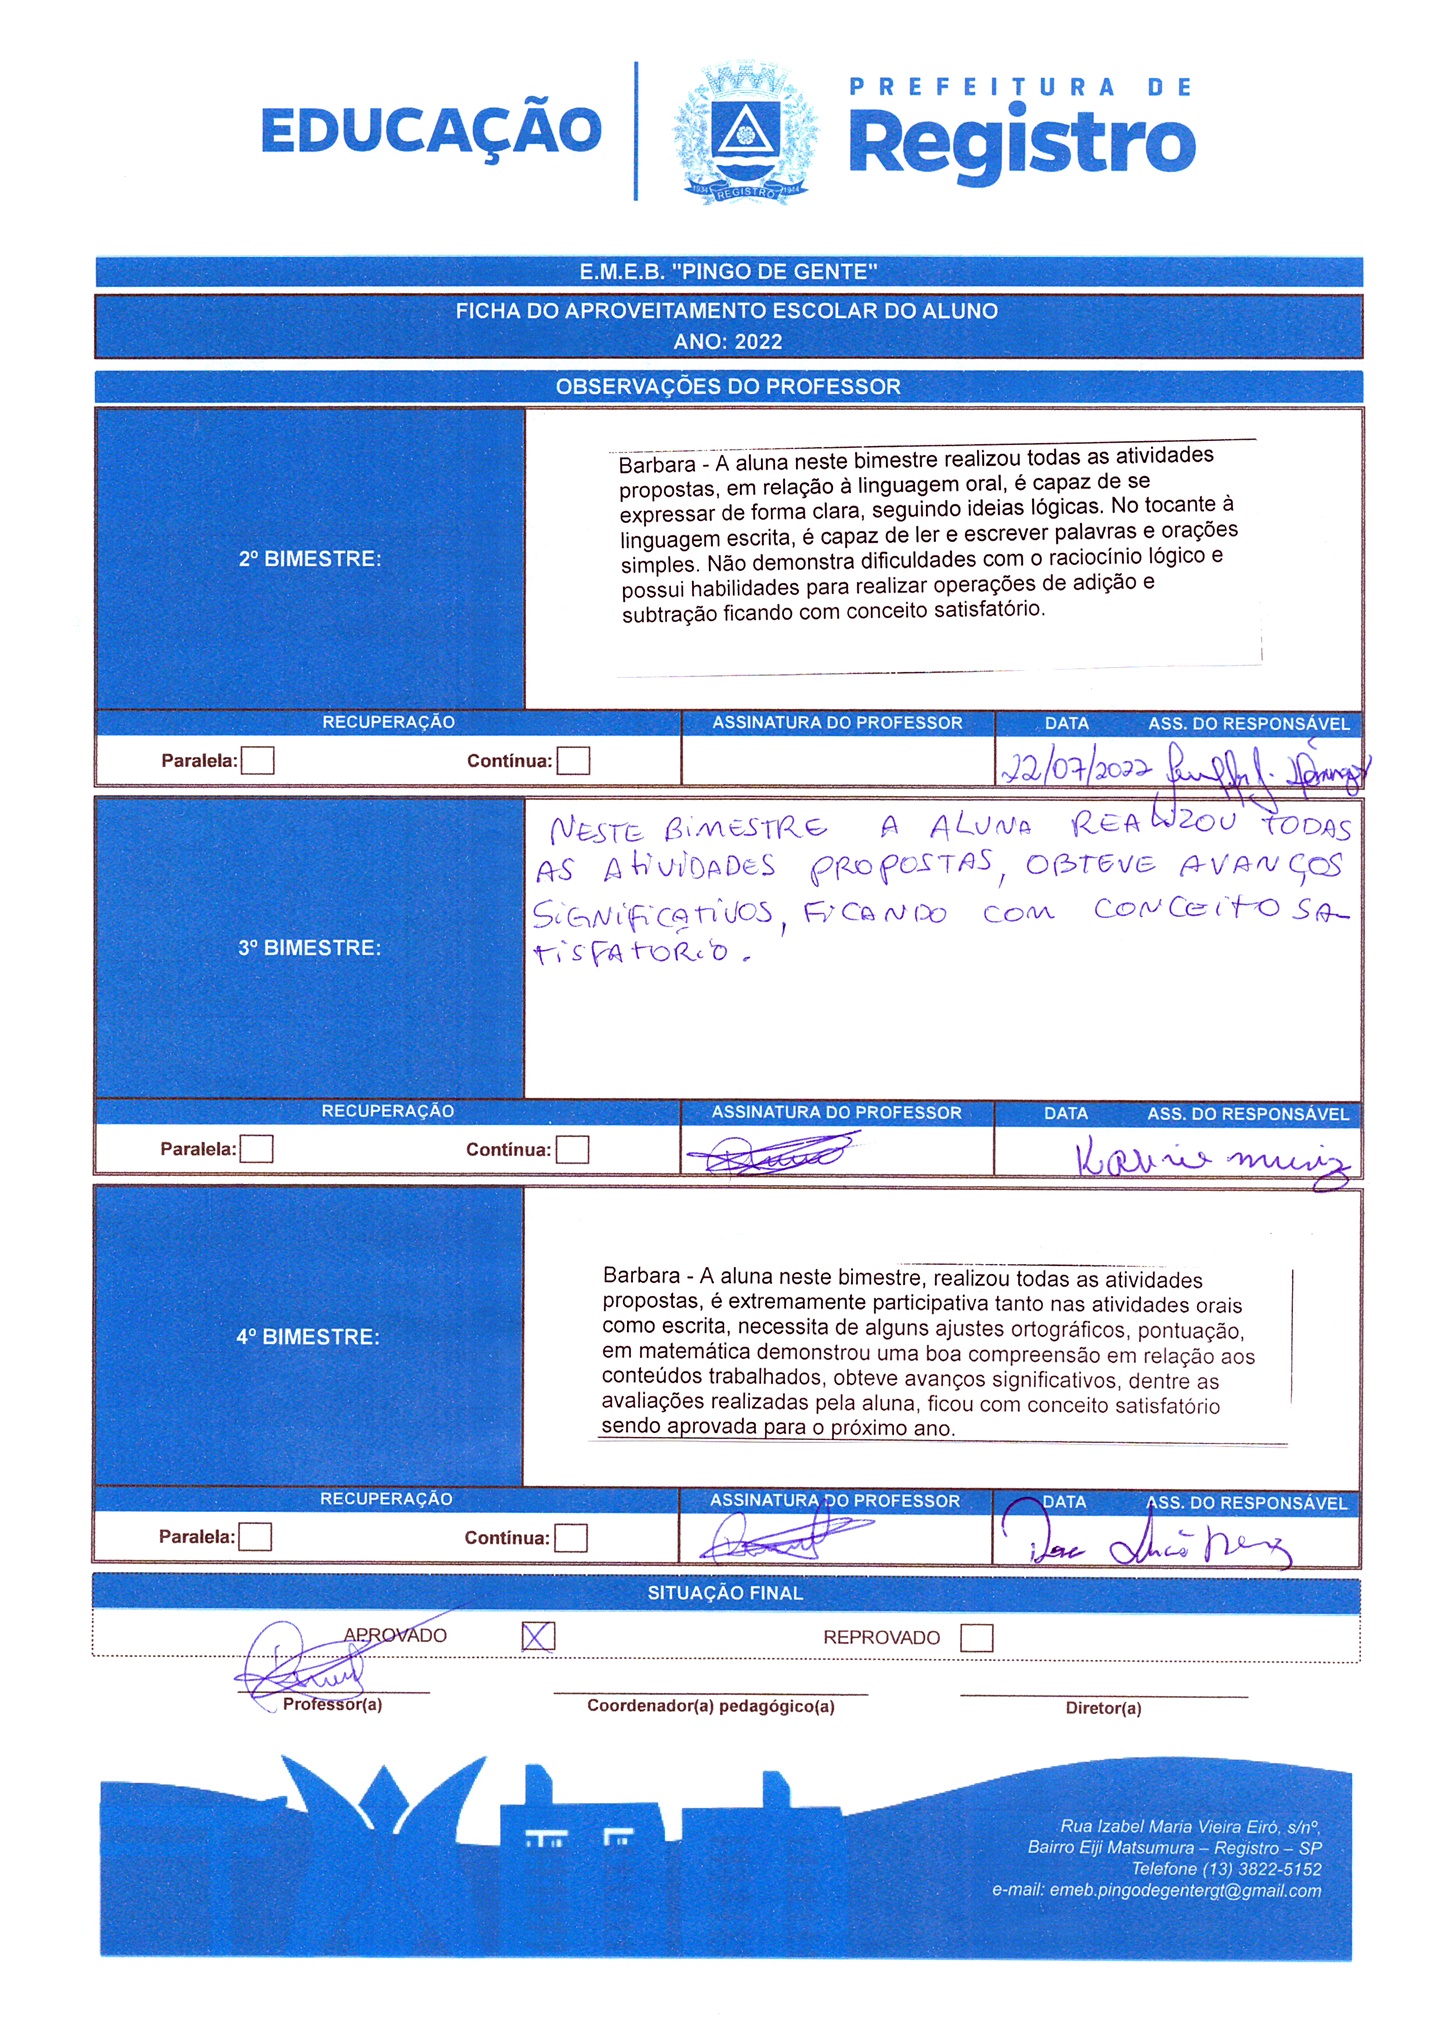 EDUCAÇÃO
PREFEITURA DE
Registro
1934 REGISTRO 1944
E.M.E.B. "PINGO DE GENTE"
FICHA DO APROVEITAMENTO ESCOLAR DO ALUNO
ANO: 2022
OBSERVAÇÕES DO PROFESSOR
2º BIMESTRE:
Barbara - A aluna neste bimestre realizou todas as atividades
propostas, em relação à linguagem oral, é capaz de se
expressar de forma clara, seguindo ideias lógicas. No tocante à
linguagem escrita, é capaz de ler e escrever palavras e orações
simples. Não demonstra dificuldades com o raciocínio lógico e
possui habilidades para realizar operações de adição e
subtração ficando com conceito satisfatório.
RECUPERAÇÃO ASSINATURA DO PROFESSOR DATA ASS. DO RESPONSÁVEL
Paralela: Contínua: 22/07/2022
NESTE BIMESTRE A ALUNA REALIZOU TODAS
AS ATIVIDADES PROPOSTAS, OBTEVE AVANÇOS
SIGNIFICATIVOS, FICANDO COM CONCEITO SA-
TISFATÓRIO.
3º BIMESTRE:
RECUPERAÇÃO ASSINATURA DO PROFESSOR DATA ASS. DO RESPONSÁVEL
Paralela: Contínua: Karine Muniz
4º BIMESTRE:
Barbara - A aluna neste bimestre, realizou todas as atividades
propostas, é extremamente participativa tanto nas atividades orais
como escrita, necessita de alguns ajustes ortográficos, pontuação,
em matemática demonstrou uma boa compreensão em relação aos
conteúdos trabalhados, obteve avanços significativos, dentre as
avaliações realizadas pela aluna, ficou com conceito satisfatório
sendo aprovada para o próximo ano.
RECUPERAÇÃO ASSINATURA DO PROFESSOR DATA ASS. DO RESPONSÁVEL
Paralela: Contínua:
SITUAÇÃO FINAL
APROVADO X REPROVADO
Professor(a) Coordenador(a) pedagógico(a) Diretor(a)
Rua Izabel Maria Vieira Eiró, s/nº,
Bairro Eiji Matsumura – Registro – SP
Telefone (13) 3822-5152
e-mail: emeb.pingodegentergt@gmail.com